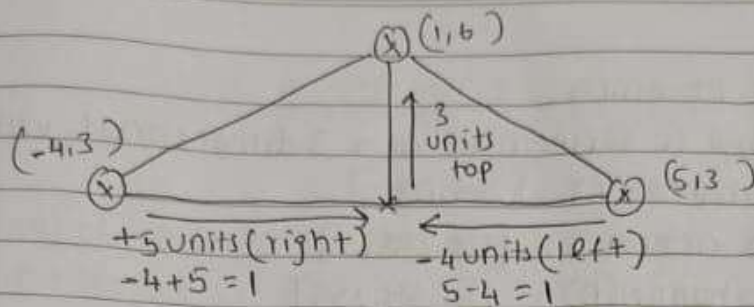 (1,6)
3
units
top
(-4,3)
(5,3)
+5 units (right)
-4+5=1
-4 units (left)
5-4=1